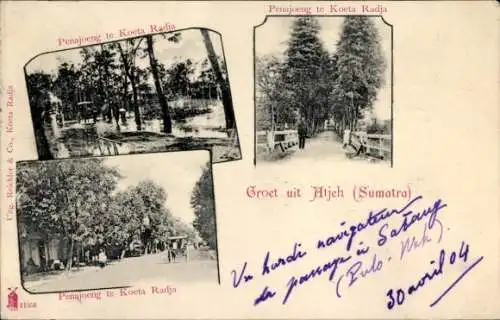 Penajoeng te Koeta Radja
Penajoeng te Koeta Radja
Uitg. Reichler & Co., Koeta Radja
Groet uit Atjeh (Sumatra)
Vu hardi navigateur
de passage à Sabang
(Pulo. Weh).
30 avril 04
Penajoeng te Koeta Radja